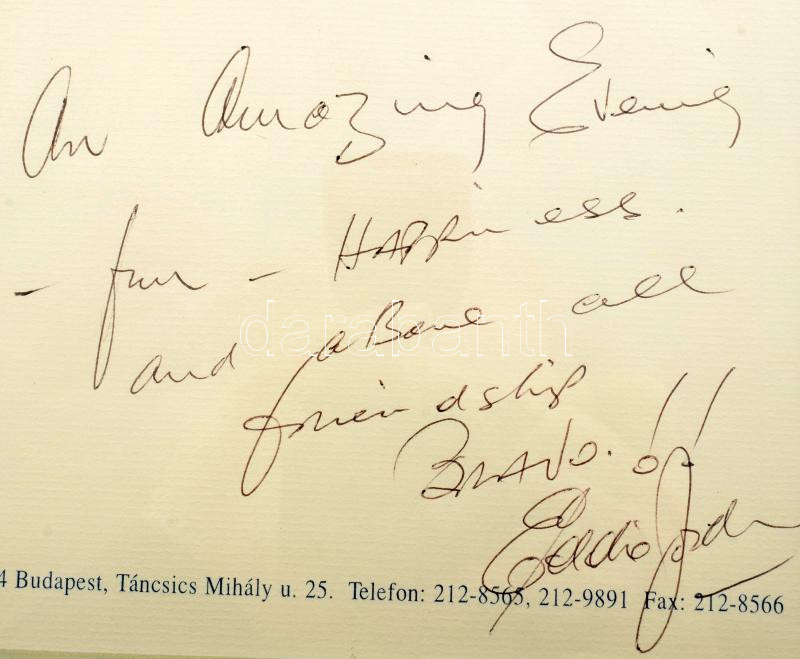 An Amazing Evening
- fun - HAPPiness.
and aBove all
friendship
BRAVO.!!
Eddie Jordan
darabanth
4 Budapest, Táncsics Mihály u. 25. Telefon: 212-8565, 212-9891 Fax: 212-8566